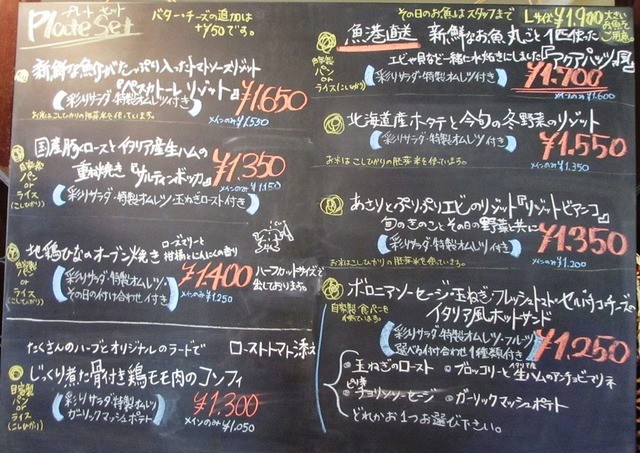 プレート セット
Plate Set
バター・チーズの追加は
+¥50です。
新鮮な魚介がたっぷり入ったトマトソースリゾット
『ペスカトーレ リゾット』
(彩りサラダ・特製オムレツ付き)
¥1,650
メインのみ¥1,530
お米はこしひかりの胚芽米を使っています。
国産豚ロースとイタリア産生ハムの
重ね焼き『サルティンボッカ』
¥1,350
メインのみ¥1,150
自家製パン or ライス(こしひかり)
(彩りサラダ・特製オムレツ・玉ねぎロースト付き)
地鶏ひなのオーブン焼き
ローズマリーと
柑橘とにんにくの香り
自家製パン or ライス(こしひかり)
(彩りサラダ・特製オムレツ・
その日の付け合わせ付き)
¥1,400
メインのみ¥1,250
ハーフカットサイズで
出しております。
たくさんのハーブとオリジナルのラードで
ローストトマト添え
じっくり煮た骨付き鶏モモ肉のコンフィ
自家製パン or ライス(こしひかり)
(彩りサラダ・特製オムレツ
ガーリックマッシュポテト)
¥1,300
メインのみ¥1,050
その日のお魚はスタッフまで
Lサイズ ¥1,900
大きいお魚でご用意。
魚港直送 新鮮なお魚丸ごと1匹使った
エビや貝など一緒に水炊きにしました『アクアパッツァ』風
自家製パン or ライス(こしひかり)
(彩りサラダ・特製オムレツ付き)
¥1,700
メインのみ¥1,600
北海道産ホタテと今旬の冬野菜のリゾット
(彩りサラダ・特製オムレツ付き)
¥1,550
メインのみ¥1,350
お米はこしひかりの胚芽米を使っています。
あさりとぷりぷりエビのリゾット『リゾットビアンコ』
旬のきのことその日の野菜と共に
(彩りサラダ・特製オムレツ付き)
¥1,350
メインのみ¥1,200
お米はこしひかりの胚芽米を使っています。
ボロニアソーセージ・玉ねぎ・フレッシュトマト・セルバチコチーズの
イタリア風ホットサンド
自家製食パンを
使っています。
(彩りサラダ・特製オムレツ・フルーツ
選べる付け合わせ1種類付き)
¥1,250
・玉ねぎのロースト
・ブロッコリーとイタリア産生ハムのアンチョビマリネ
・ピリ辛チョリソーソーセージ
・ガーリックマッシュポテト
どれかお1つお選び下さい。